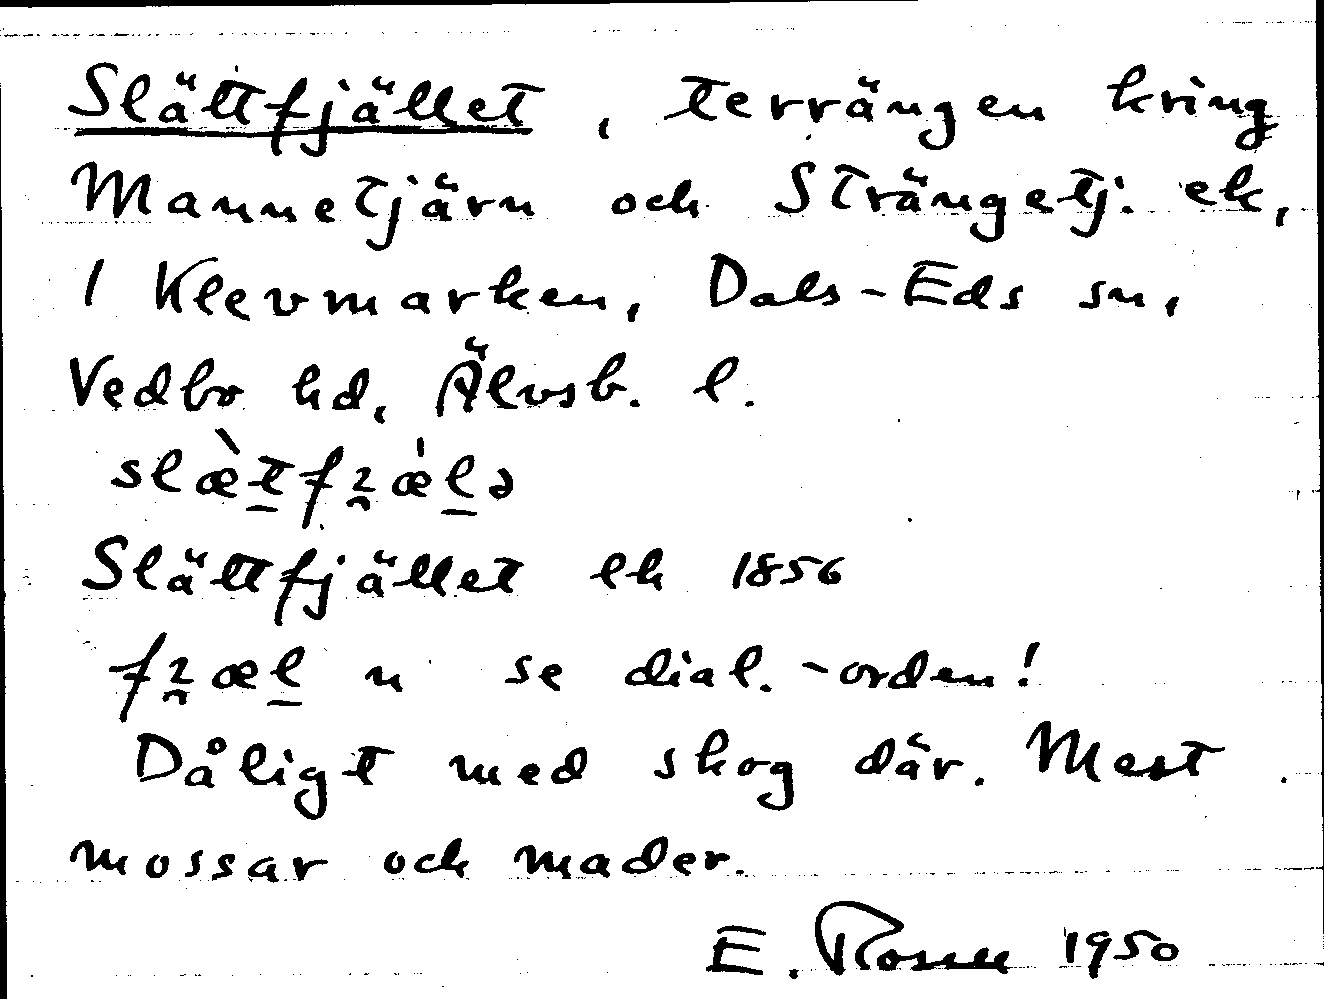 Slättfjället, terrängen kring
Mannetjärn och Strängetj. ek,
1 Klevmarken, Dals-Eds sn,
Vedbo hd, Älvsb. l.
slæ̀t̲fʒæ̍l̲ə
Slättfjället ek 1856
fʒæl̲ n se dial.-orden!
Dåligt med skog där. Mest
mossar och mader.
E. Rosell 1950